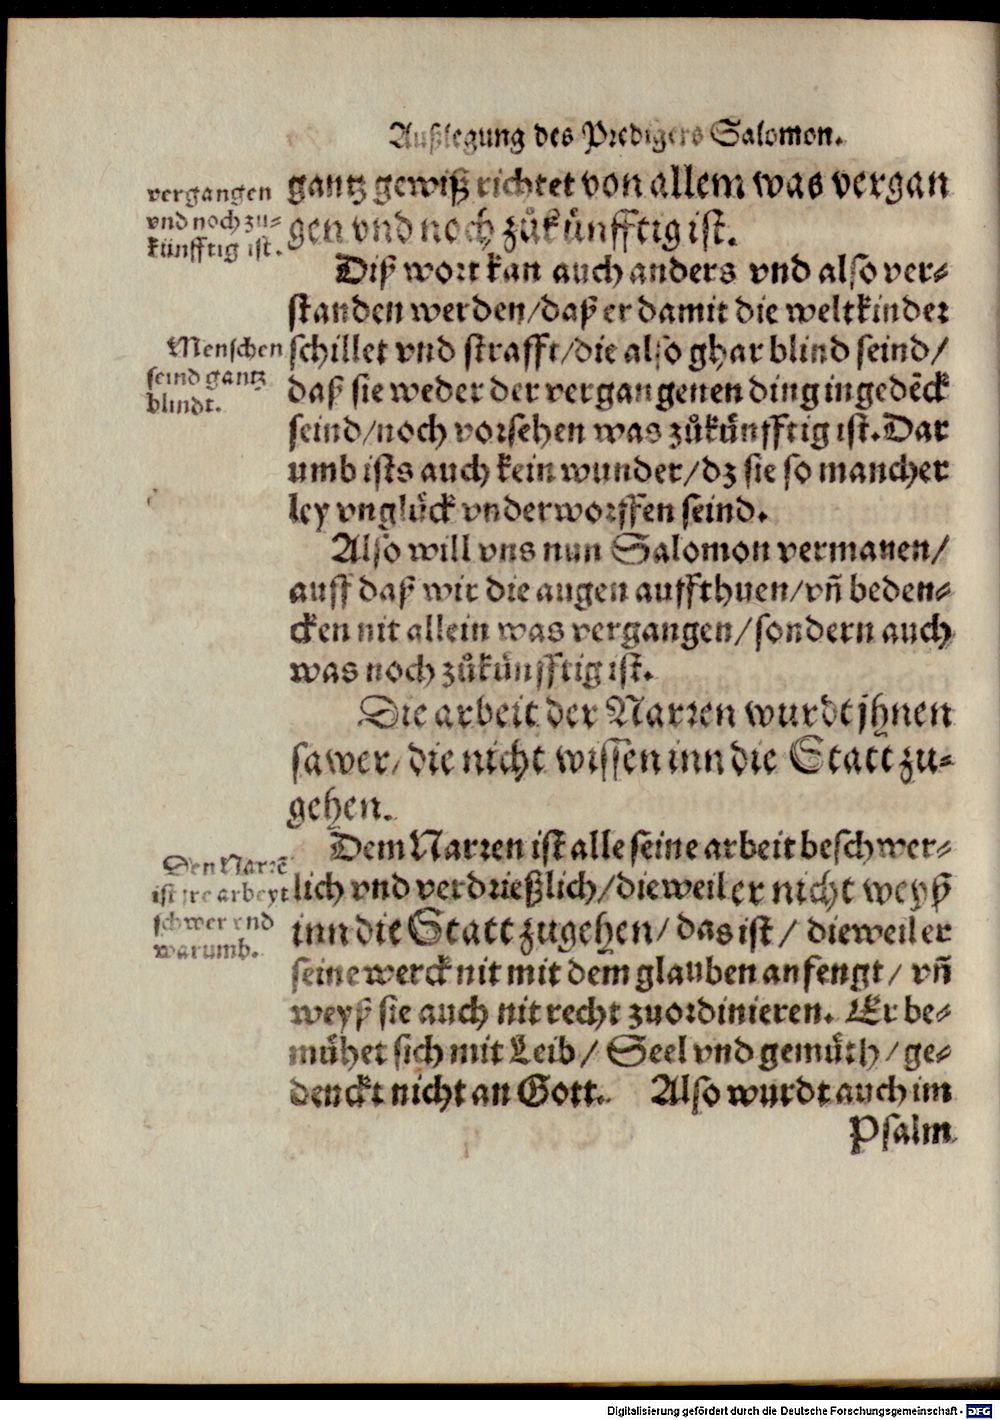 Außlegung des Predigers Salomon.
vergangen
vnd noch zu-
künfftig ist.
gantz gewiß richtet von allem was vergan
gen vnd noch zůkünfftig ist.
Diß wort kan auch anders vnd also ver-
standen werden/daß er damit die weltkinder
Menschen
seind gantz
blindt.
schillet vnd strafft/die also ghar blind seind/
daß sie weder der vergangenen ding ingedẽck
seind/noch vorsehen was zůkünfftig ist.Dar
umb ists auch kein wunder/dz sie so mancher
ley vnglück vnderworffen seind.
Also will vns nun Salomon vermanen/
auff daß wir die augen auffthuen/vñ beden-
cken nit allein was vergangen/sondern auch
was noch zůkünfftig ist.
Die arbeit der Narren wurdt jhnen
sawer/die nicht wissen inn die Statt zu-
gehen.
Den Narrẽ
ist ire arbeyt
schwer vnd
warumb.
Dem Narren ist alle seine arbeit beschwer-
lich vnd verdrießlich/dieweil er nicht weyß
inn die Statt zugehen/das ist/ dieweil er
seine werck nit mit dem glauben anfengt/ vñ
weyß sie auch nit recht zuordinieren. Er be-
mühet sich mit Leib/ Seel vnd gemüth/ge-
denckt nicht an Gott. Also wurdt auch im
Psalm
Digitalisierung gefördert durch die Deutsche Forschungsgemeinschaft - DFG